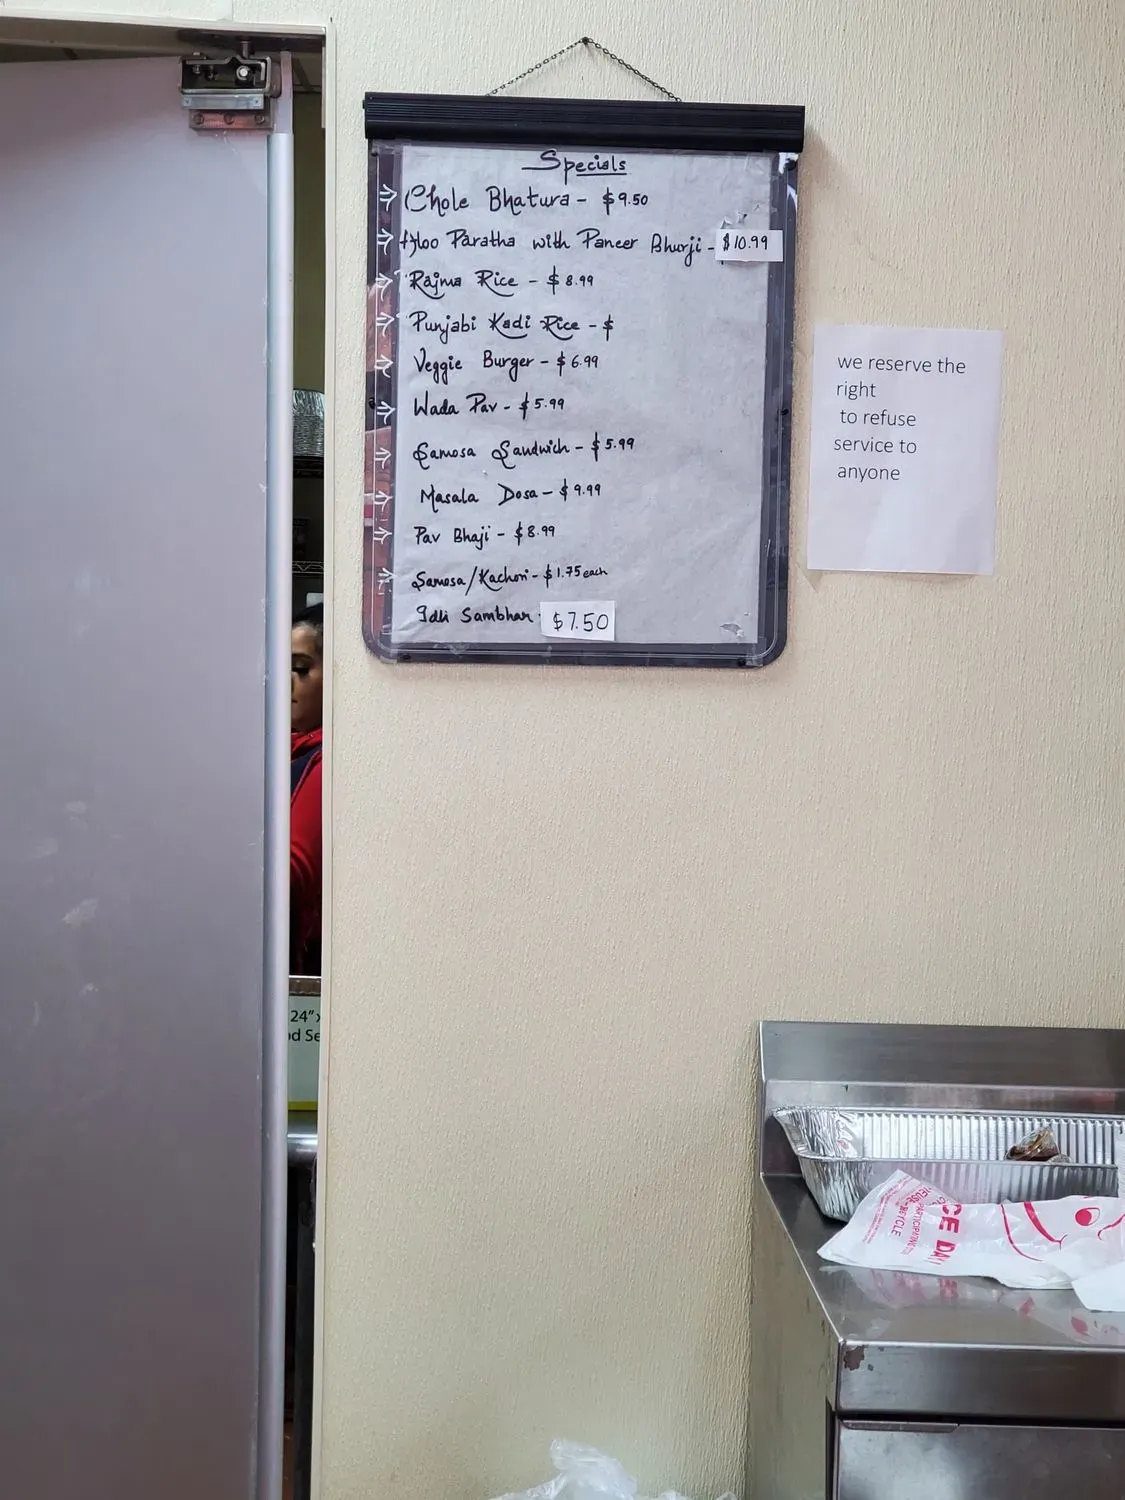 Specials
Chole Bhatura - $9.50
Aloo Paratha with Paneer Bhurji - $10.99
Rajma Rice - $8.99
Punjabi Kadi Rice - $
Veggie Burger - $6.99
Wada Pav - $5.99
Samosa Sandwich - $5.99
Masala Dosa - $9.99
Pav Bhaji - $8.99
Samosa/Kachori - $1.75 each
Idli Sambhar $7.50
we reserve the
right
to refuse
service to
anyone
24"